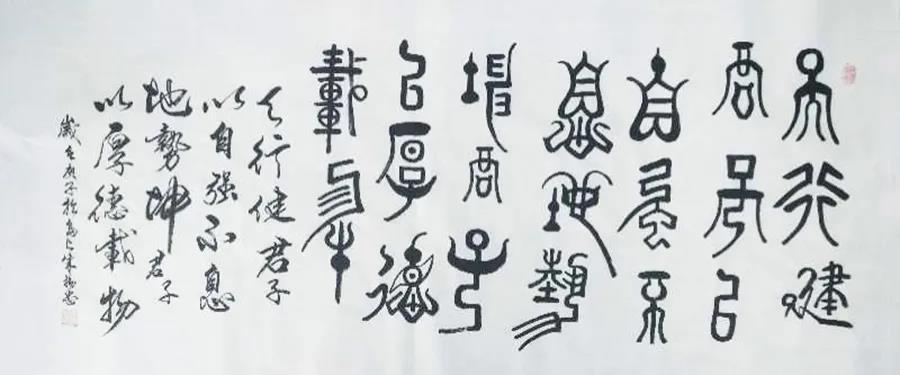 天行健
君子以
自强不
息地勢
坤君子
以厚德
載物
天行健君子
以自强不息
地勢坤君子
以厚德載物
歲在庚子